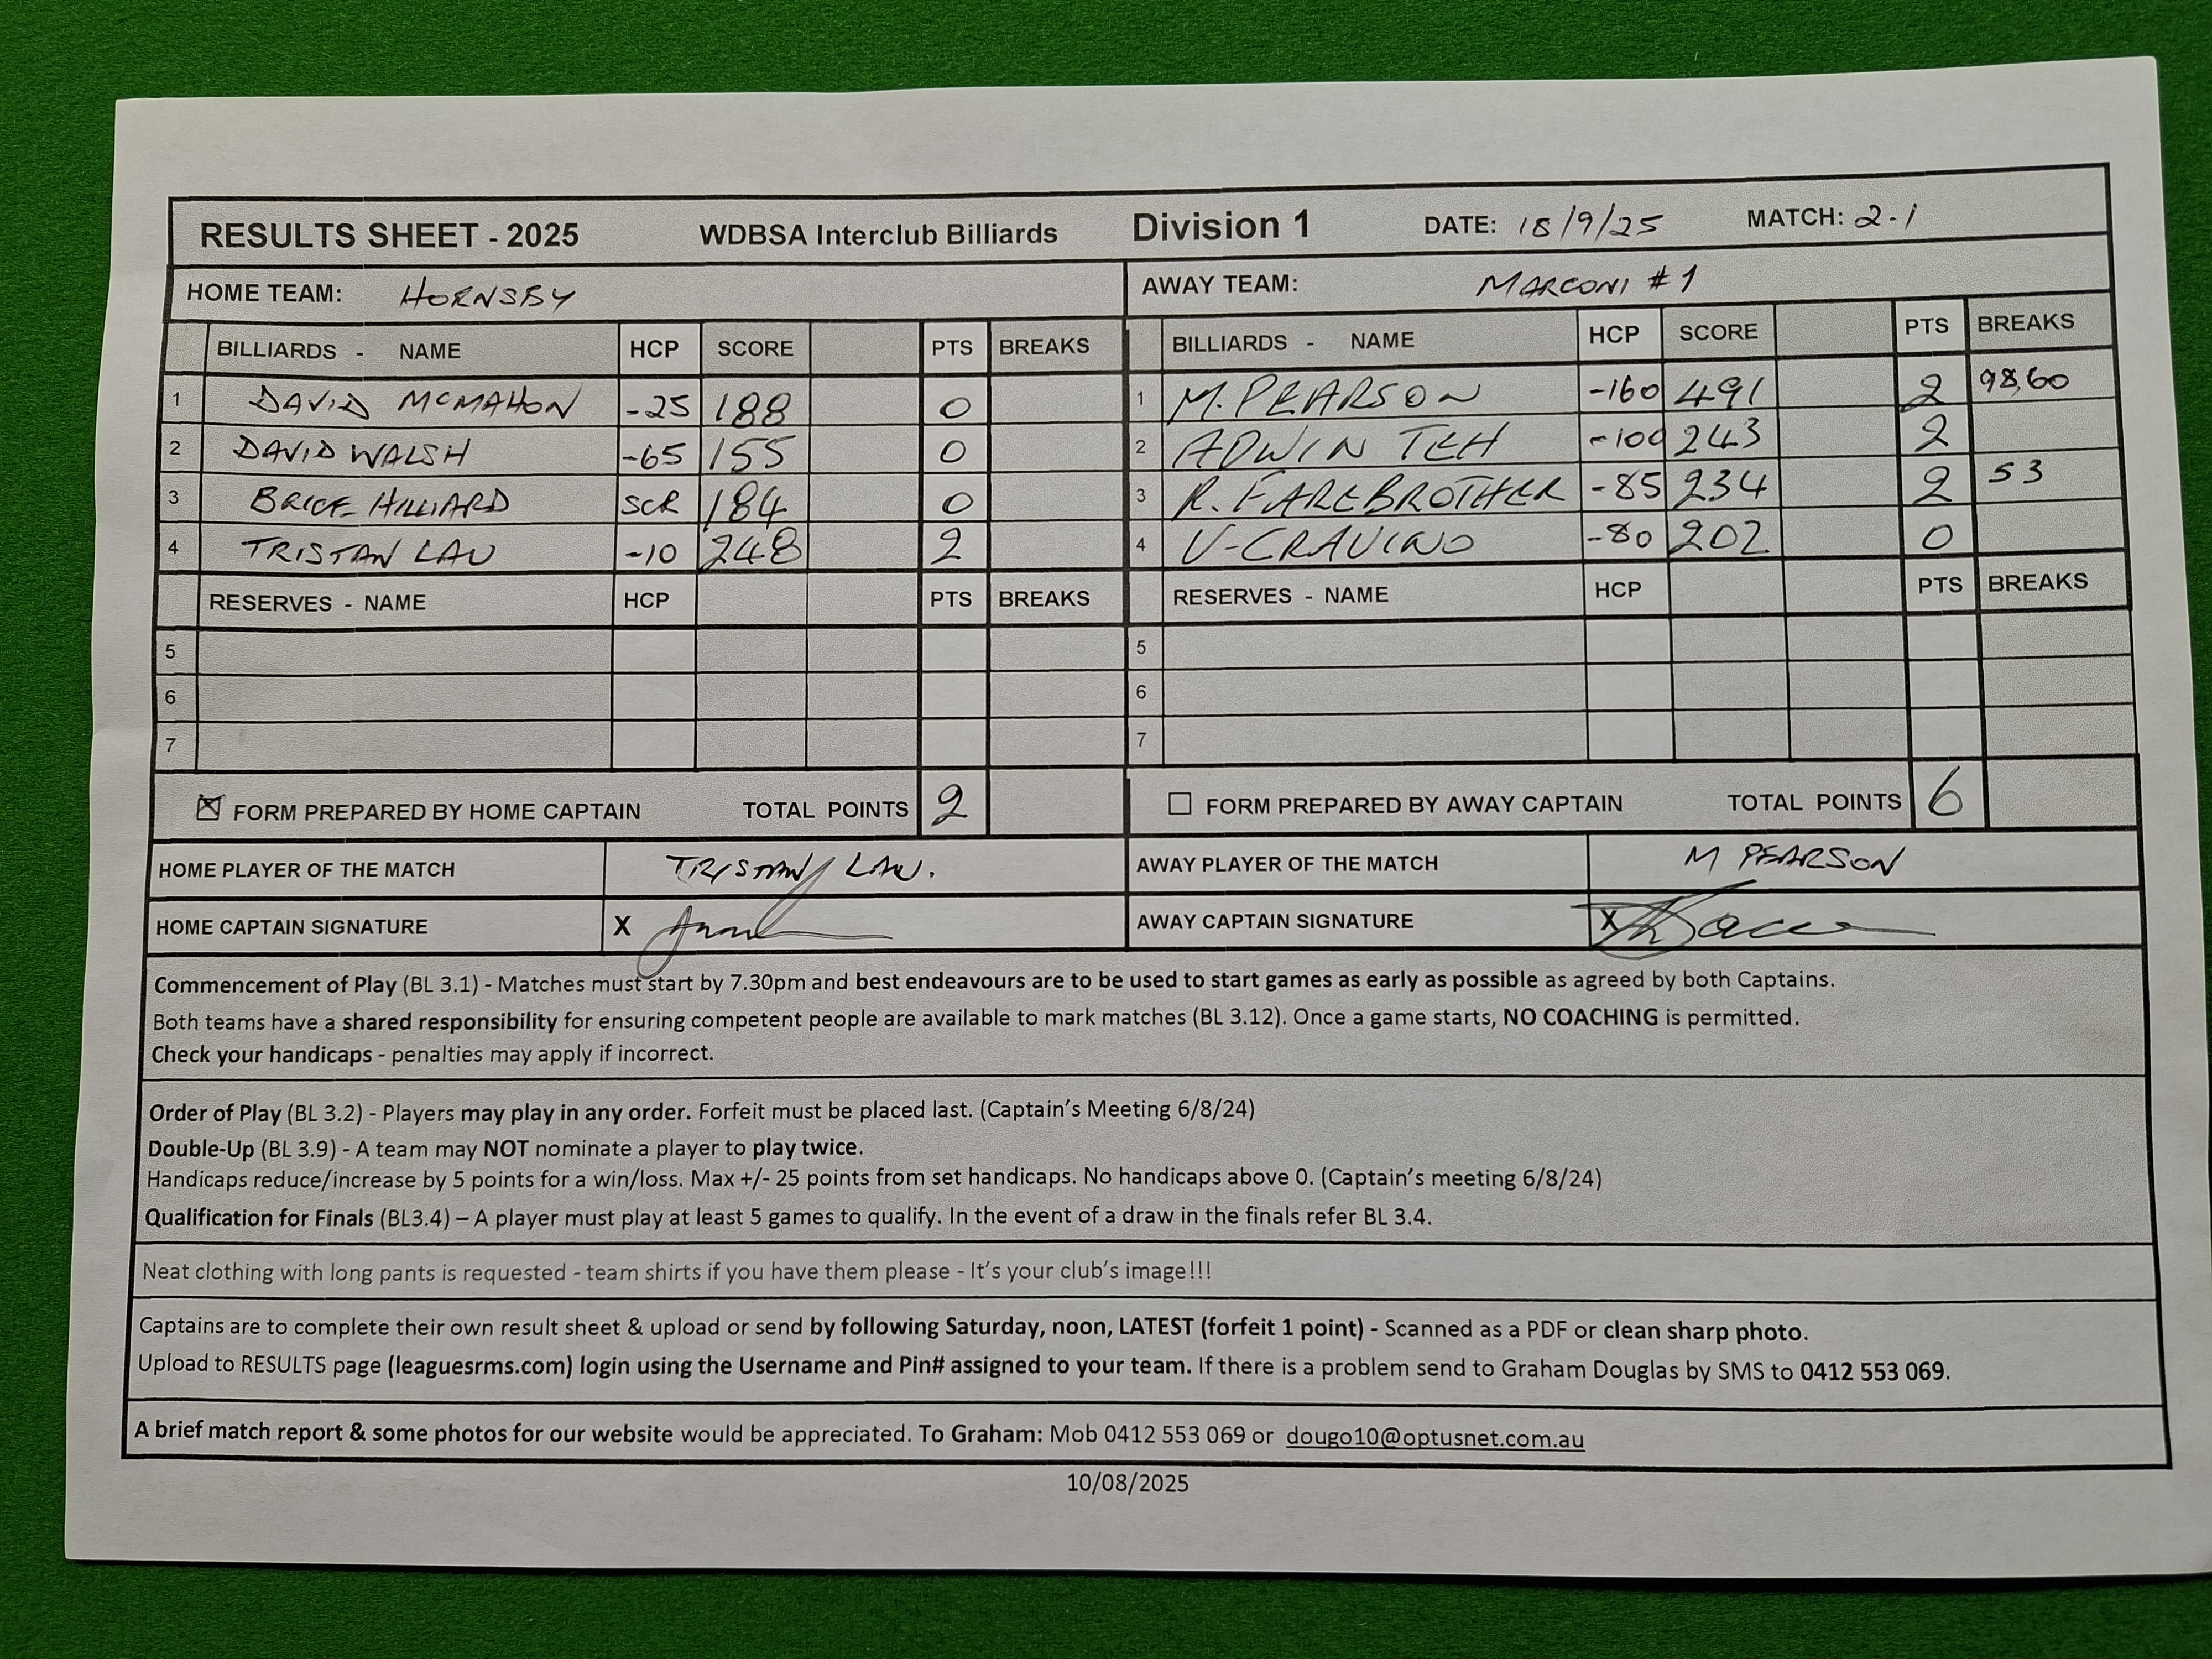 RESULTS SHEET - 2025 WDBSA Interclub Billiards Division 1 DATE: 18/9/25 MATCH: 2-1
HOME TEAM: HORNSBY AWAY TEAM: MARCONI #1
BILLIARDS - NAME HCP SCORE PTS BREAKS BILLIARDS - NAME HCP SCORE PTS BREAKS
1 DAVID MCMAHON -25 188 0 1 M. PEARSON -160 491 2 98,60
2 DAVID WALSH -65 155 0 2 ADWIN TEH -100 243 2
3 BRICE HILLIARD SCR 184 0 3 R. FAREBROTHER -85 234 2 53
4 TRISTAN LAU -10 248 2 4 V-CRAVINO -80 202 0
RESERVES - NAME HCP PTS BREAKS RESERVES - NAME HCP PTS BREAKS
5 5
6 6
7 7
FORM PREPARED BY HOME CAPTAIN TOTAL POINTS 2 FORM PREPARED BY AWAY CAPTAIN TOTAL POINTS 6
HOME PLAYER OF THE MATCH TRISTAN LAU. AWAY PLAYER OF THE MATCH M PEARSON
HOME CAPTAIN SIGNATURE X AWAY CAPTAIN SIGNATURE X
Commencement of Play (BL 3.1) - Matches must start by 7.30pm and best endeavours are to be used to start games as early as possible as agreed by both Captains.
Both teams have a shared responsibility for ensuring competent people are available to mark matches (BL 3.12). Once a game starts, NO COACHING is permitted.
Check your handicaps - penalties may apply if incorrect.
Order of Play (BL 3.2) - Players may play in any order. Forfeit must be placed last. (Captain's Meeting 6/8/24)
Double-Up (BL 3.9) - A team may NOT nominate a player to play twice.
Handicaps reduce/increase by 5 points for a win/loss. Max +/- 25 points from set handicaps. No handicaps above 0. (Captain's meeting 6/8/24)
Qualification for Finals (BL3.4) – A player must play at least 5 games to qualify. In the event of a draw in the finals refer BL 3.4.
Neat clothing with long pants is requested - team shirts if you have them please - It's your club's image!!!
Captains are to complete their own result sheet & upload or send by following Saturday, noon, LATEST (forfeit 1 point) - Scanned as a PDF or clean sharp photo.
Upload to RESULTS page (leaguesrms.com) login using the Username and Pin# assigned to your team. If there is a problem send to Graham Douglas by SMS to 0412 553 069.
A brief match report & some photos for our website would be appreciated. To Graham: Mob 0412 553 069 or dougo10@optusnet.com.au
10/08/2025